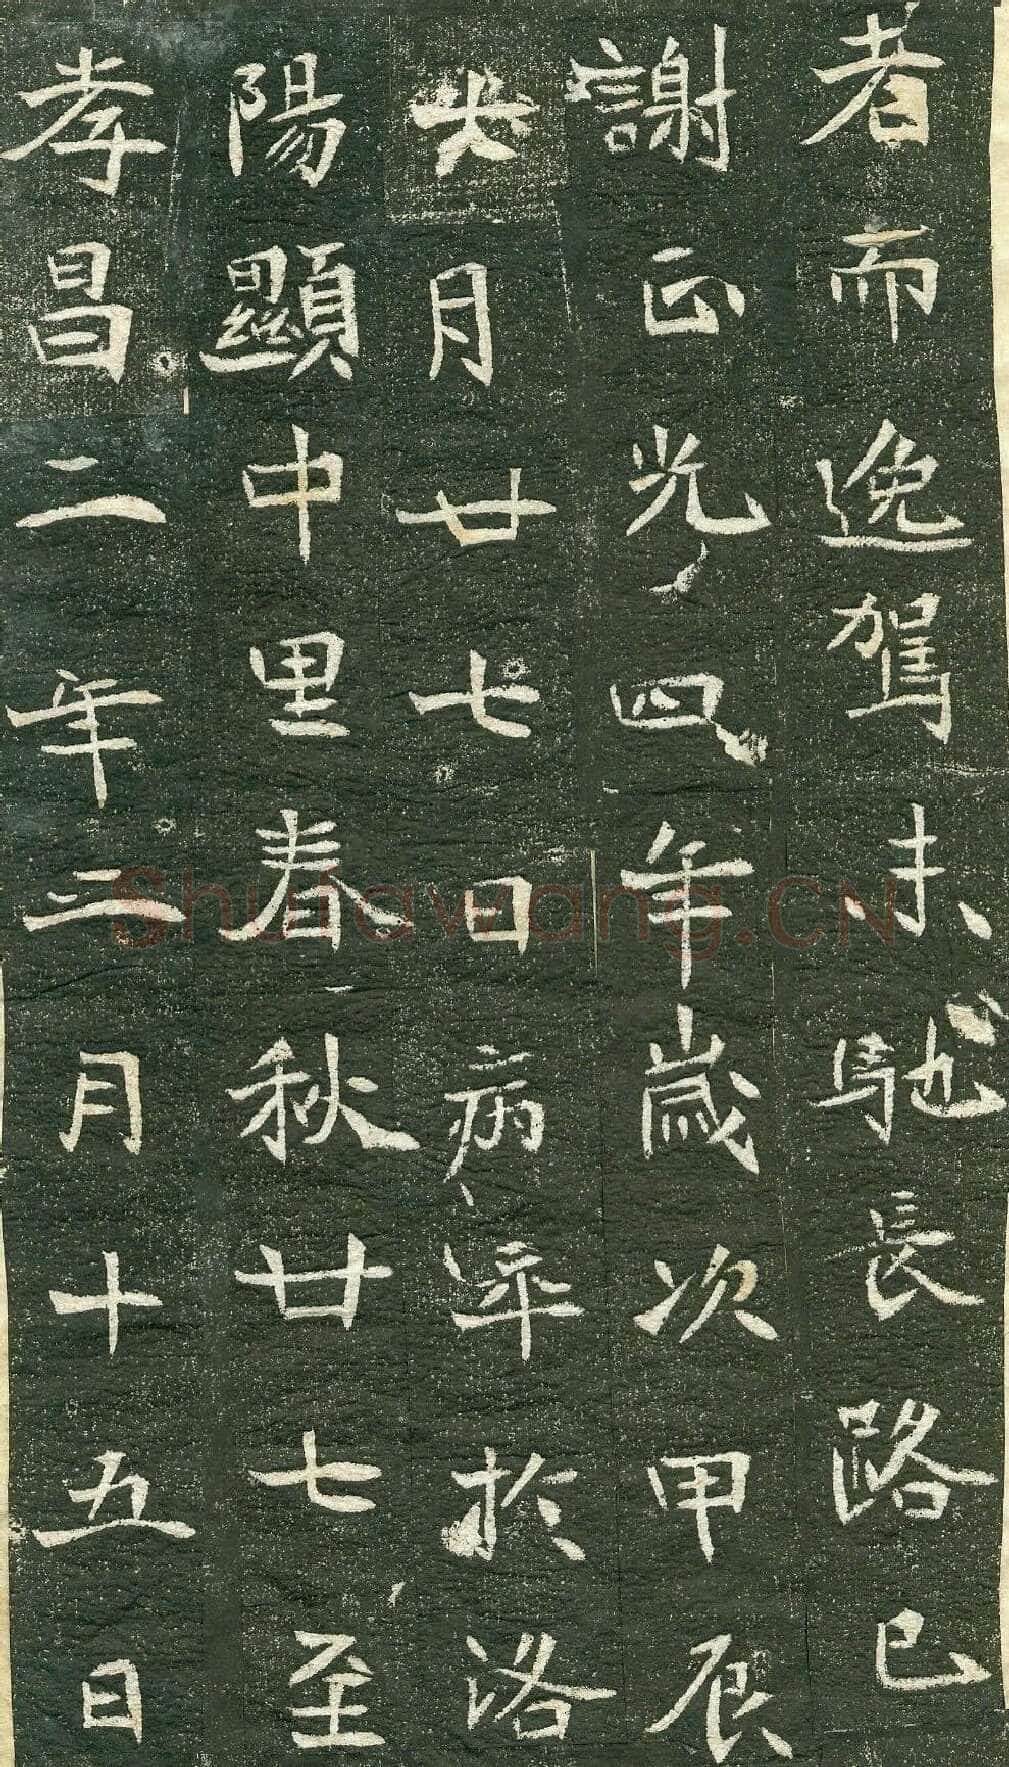 者而逸駕未馳長路已
謝正光四年歲次甲辰
六月廿七日病卒於洛
陽顯中里春秋廿七至
孝昌二年三月十五日
Shufawang.CN